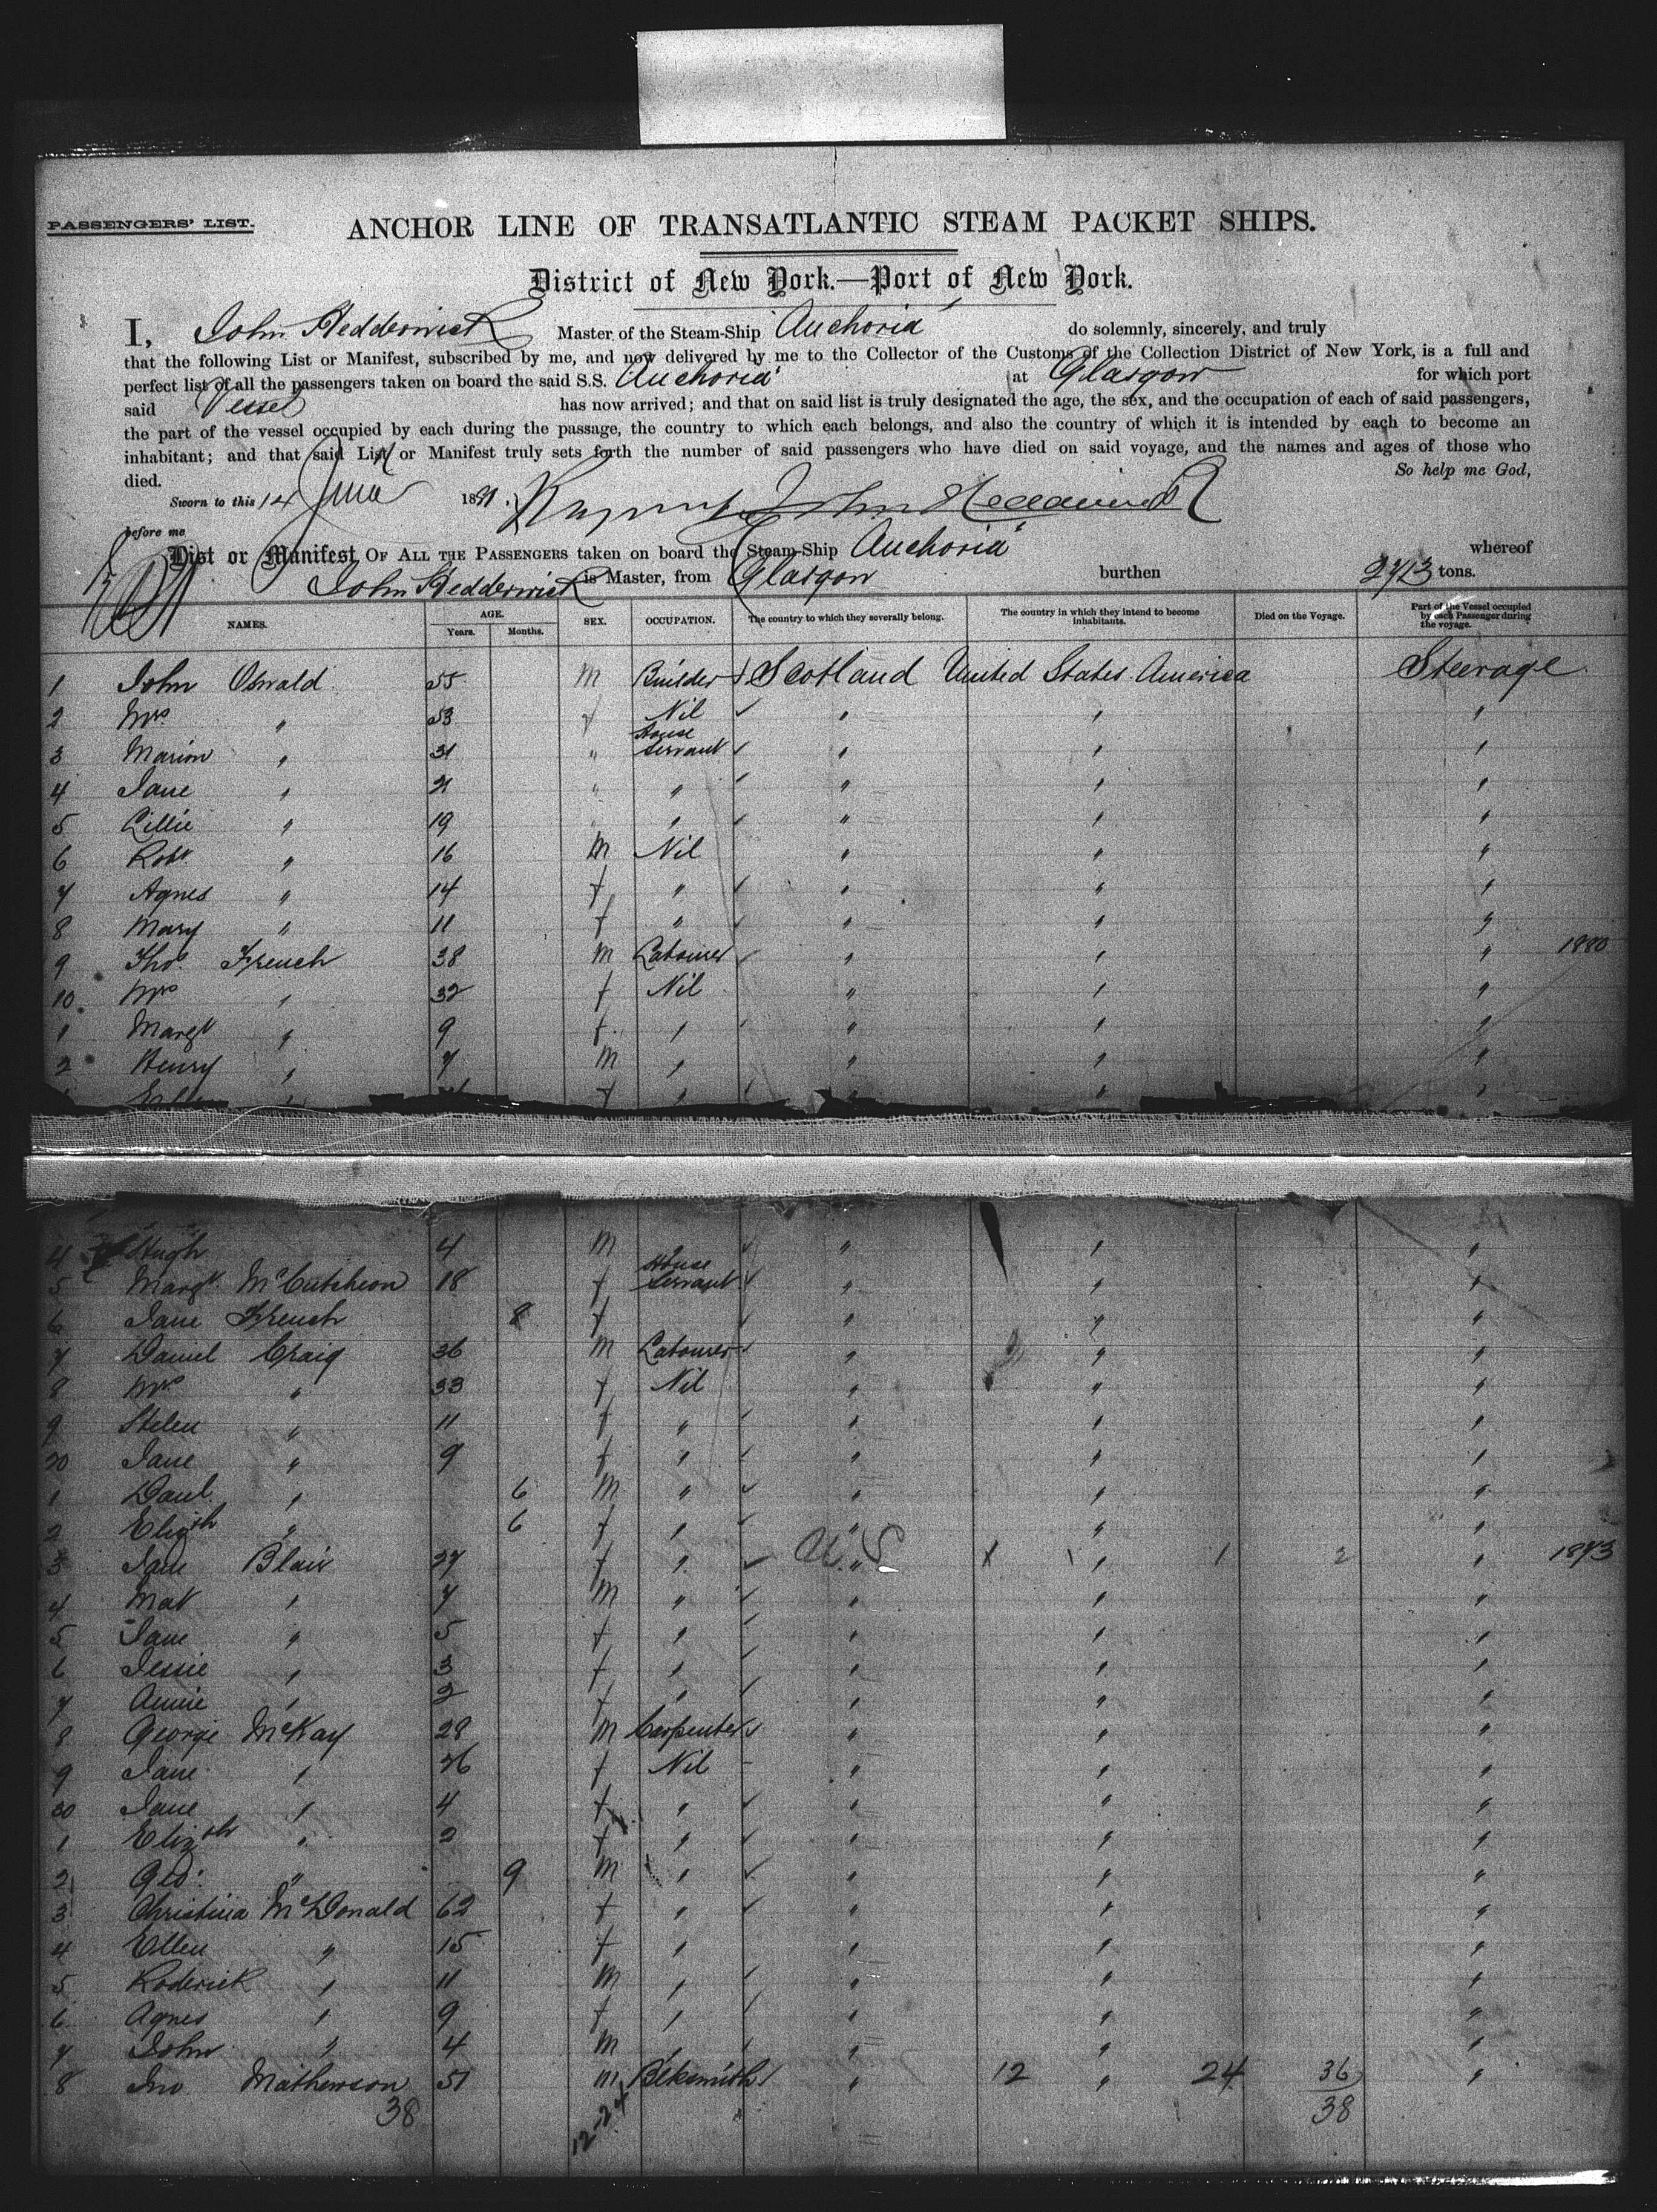 PASSENGERS' LIST.
ANCHOR LINE OF TRANSATLANTIC STEAM PACKET SHIPS.
District of New York.—Port of New York.
I, John Hedderwick Master of the Steam-Ship Anchoria do solemnly, sincerely, and truly
that the following List or Manifest, subscribed by me, and now delivered by me to the Collector of the Customs of the Collection District of New York, is a full and
perfect list of all the passengers taken on board the said S.S. Anchoria at Glasgow for which port
said Vessel has now arrived; and that on said list is truly designated the age, the sex, and the occupation of each of said passengers,
the part of the vessel occupied by each during the passage, the country to which each belongs, and also the country of which it is intended by each to become an
inhabitant; and that said List or Manifest truly sets forth the number of said passengers who have died on said voyage, and the names and ages of those who
died. So help me God,
Sworn to this 14 June 1881. John Hedderwick
before me
List or Manifest, OF ALL THE PASSENGERS taken on board the Steam-Ship Anchoria whereof
John Hedderwick is Master, from Glasgow burthen 2713 tons.
NAMES. AGE. Years. Months. SEX. OCCUPATION. The country to which they severally belong. The country in which they intend to become inhabitants. Died on the Voyage. Part of the Vessel occupied by each Passenger during the voyage.
1 John Oswald 55 M Builder Scotland United States America Steerage
2 Mrs " 53 f Nil " " "
3 Marion " 31 " House Servant " " "
4 Jane " 21 " " " " "
5 Lillie " 19 " " " "
6 Robt " 16 M Nil " " "
7 Agnes " 14 f " " " "
8 Mary " 11 f " " " "
9 Thos. French 38 M Labourer " " " 1880
10 Mrs " 32 f Nil " " "
1 Margt " 9 f " " " "
2 Henry " 7 M " " " "
Ellen " f " " " "
4 Hugh 4 M " " "
5 Margt. McCutcheon 18 f House Servant " " "
6 Jane French 8 f " " "
7 Daniel Craig 36 M Labourer " " "
8 Mrs " 33 f Nil " " "
9 Helen " 11 f " " " "
20 Jane " 9 f " " " "
1 Danl. " 6 M " " " "
2 Elizth " 6 f " " " "
3 Jane Blair 27 f " U.S. " X 1 " 1 2 " 1873
4 Mat " 7 M " " " "
5 Jane " 5 f " " " "
6 Jessie " 3 f " " " "
7 Annie " 2 f " " " "
8 George McKay 28 M Carpenter " " "
9 Jane " 26 f Nil " " "
30 Jane " 4 f " " " "
1 Elizth " 2 f " " " "
2 Geo. " 9 M " " " "
3 Christina McDonald 62 f " " " "
4 Ellen " 15 f " " " "
5 Roderick " 11 M " " " "
6 Agnes " 9 f " " " "
7 John " 4 M " " " "
8 Jno Mathewson 51 M Blksmith " 12 " 24 36 "
38 12-24 38